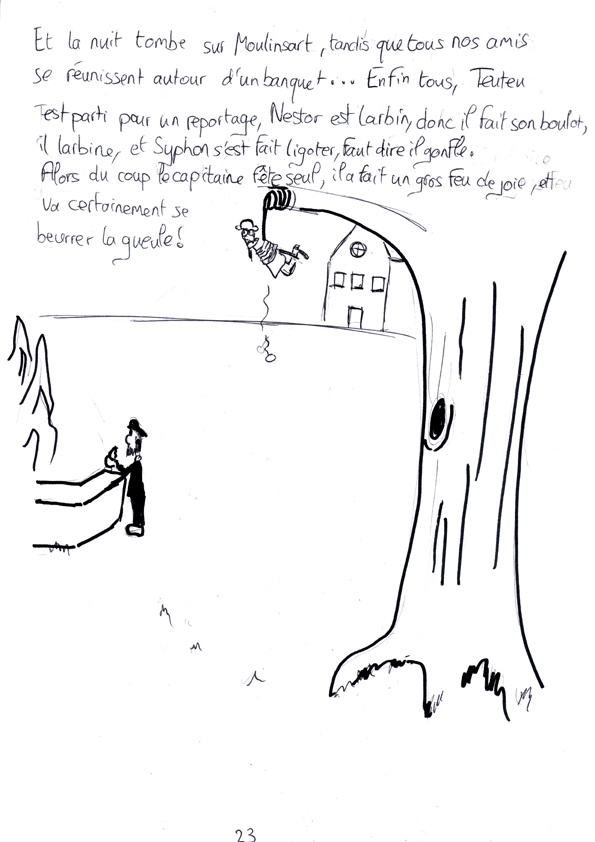 Et la nuit tombe sur Moulinsart, tandis que tous nos amis
se réunissent autour d'un banquet... Enfin tous, Teuteu
Test parti pour un reportage, Nestor est Larbin, donc il fait son boulot,
il larbine, et Syphon s'est fait ligoter, faut dire il gonfle.
Alors du coup le capitaine fête seul, il a fait un gros feu de joie, et
va certainement se
beurrer la gueule!
23